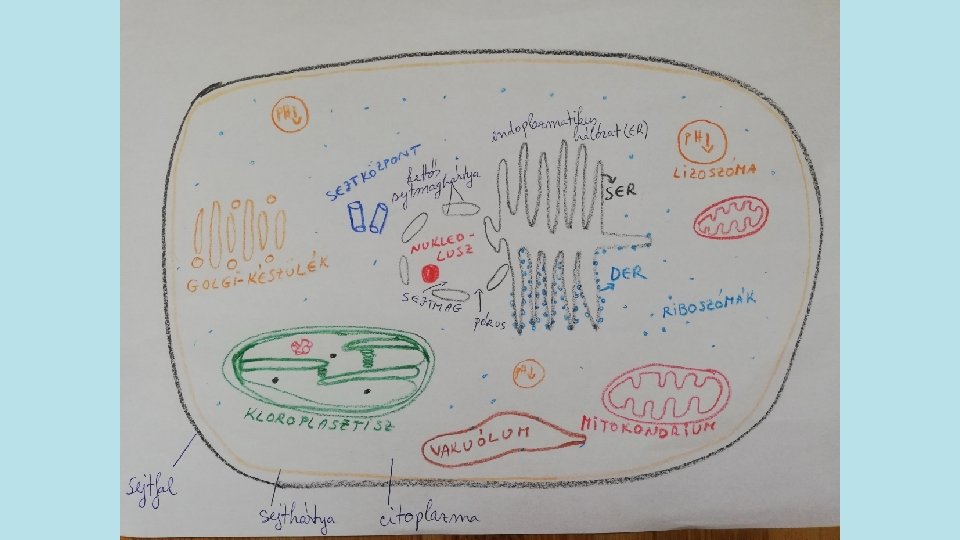 PH↓
endoplazmatikus
hálózat (ER)
PH↓
LIZOSZÓMA
SEJTKÖZPONT
kettős
sejtmaghártya
SER
NUKLEO-
LUSZ
GOLGI-KÉSZÜLÉK
DER
SEJTMAG
pórus
RIBOSZÓMÁK
PH↓
KLOROPLASZTISZ
VAKUÓLUM
MITOKONDRIUM
sejtfal
sejthártya
citoplazma